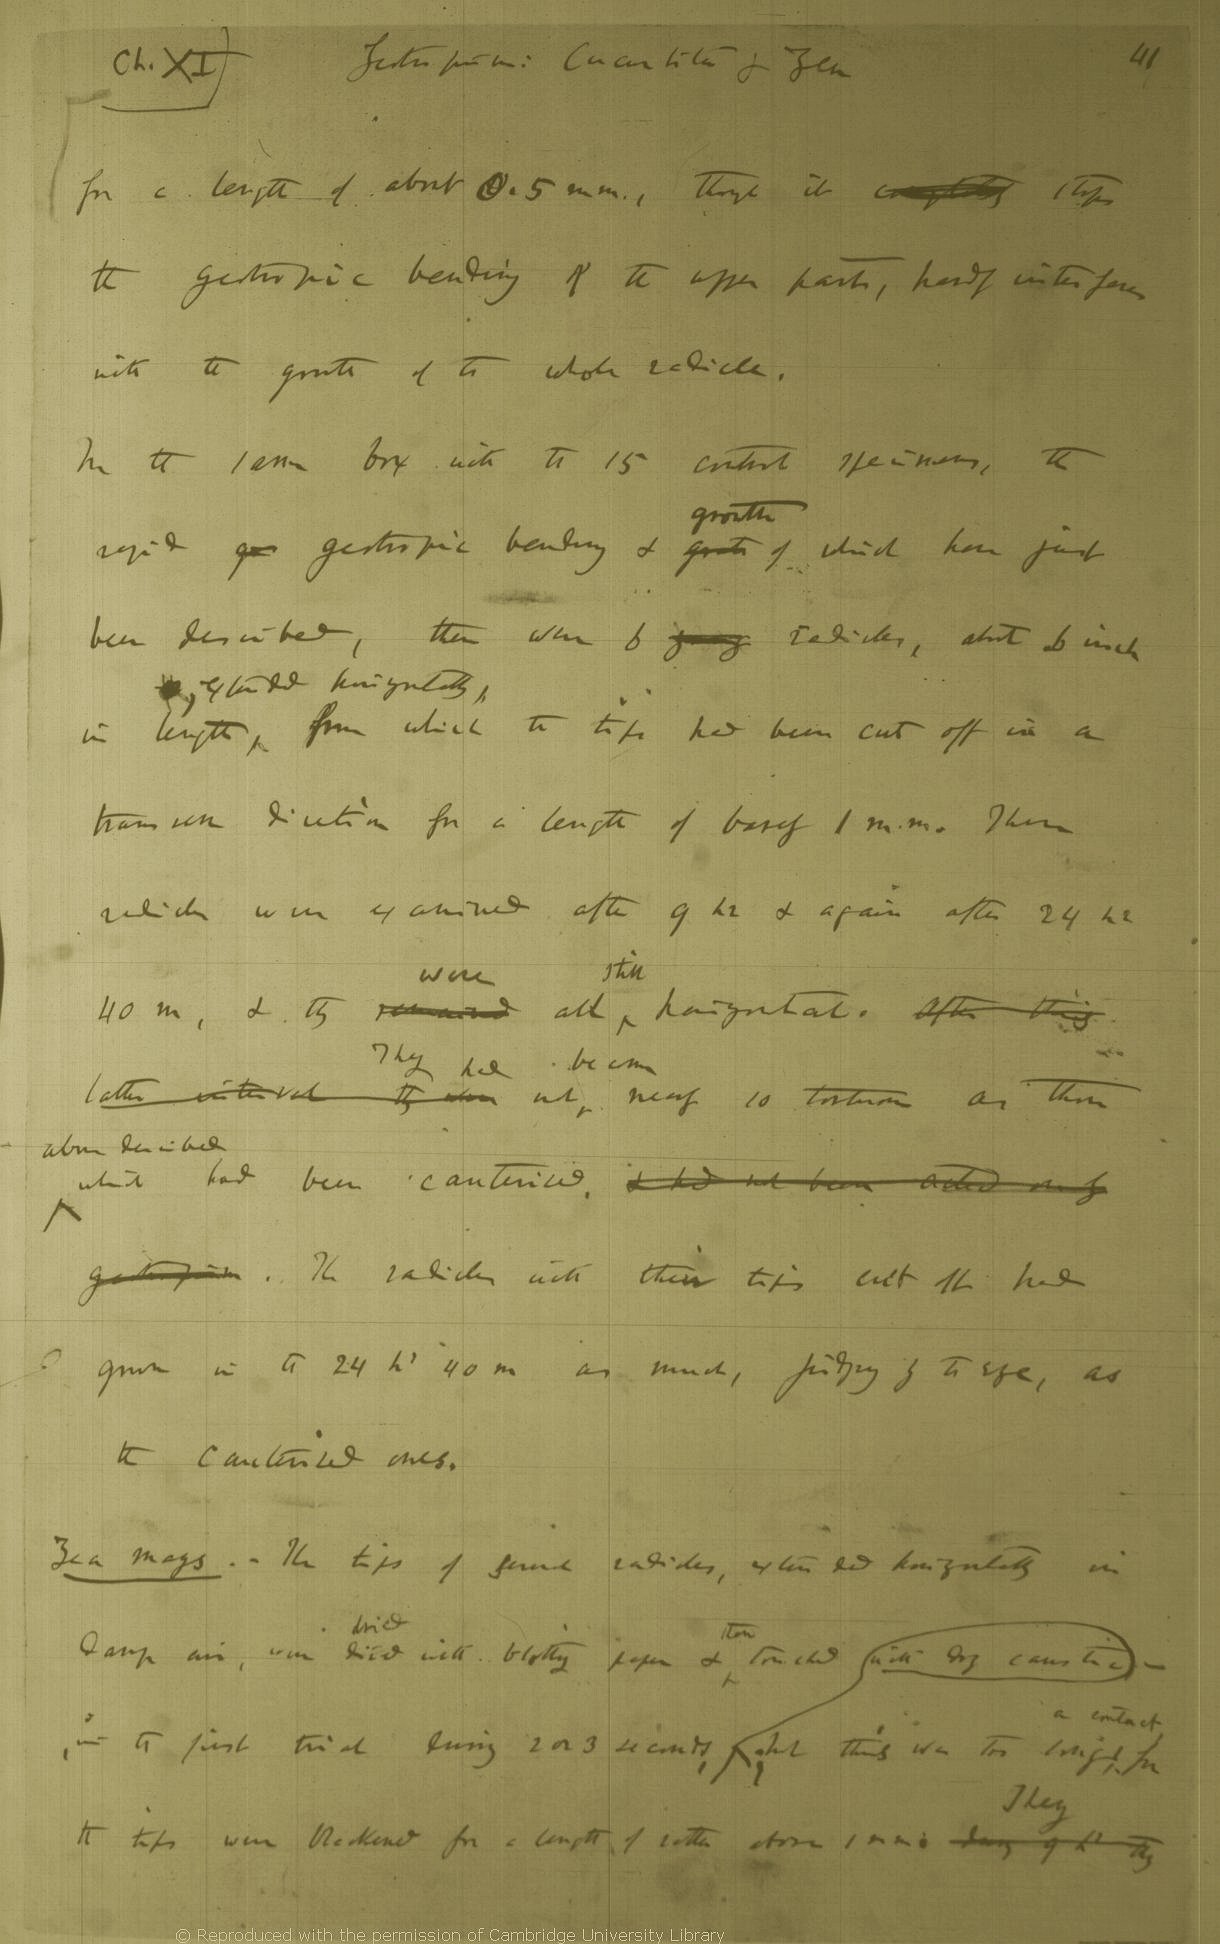 Ch. XI) Geotropism: Cucurbita & Zea 41
for a length of about 0.5 mm., though it completely stops
the geotropic bending of the upper parts, hardly interferes
with the growth of the whole radicle.
In the same box with the 15 control specimens, the
growth
rapid geotropic bending & growth of which have just
been described, there were 6 young radicles, about .6 inch
, extended horizontally,
in length, from which the tips had been cut off in a
transverse direction for a length of barely 1 m.m. These
radicles were examined after 9 hr & again after 24 hr
were still
40 m, & they remained all horizontal. After this
They had become
latter interval they were not nearly so tortuous as those
above described
which had been cauterised, & had not been acted on by
geotropism. The radicles with their tips cut off had
grown in the 24 hr 40 m as much, judging by the eye, as
the cauterised ones.
Zea mays. - The tips of several radicles, extended horizontally in
dried then
damp air, were dried with blotting paper & touched with dry caustic -
a contact,
, in the first trial during 2 or 3 seconds, but this was too long, for
They
the tips were blackened for a length of rather above 1 mm. during 9 hr they
© Reproduced with the permission of Cambridge University Library